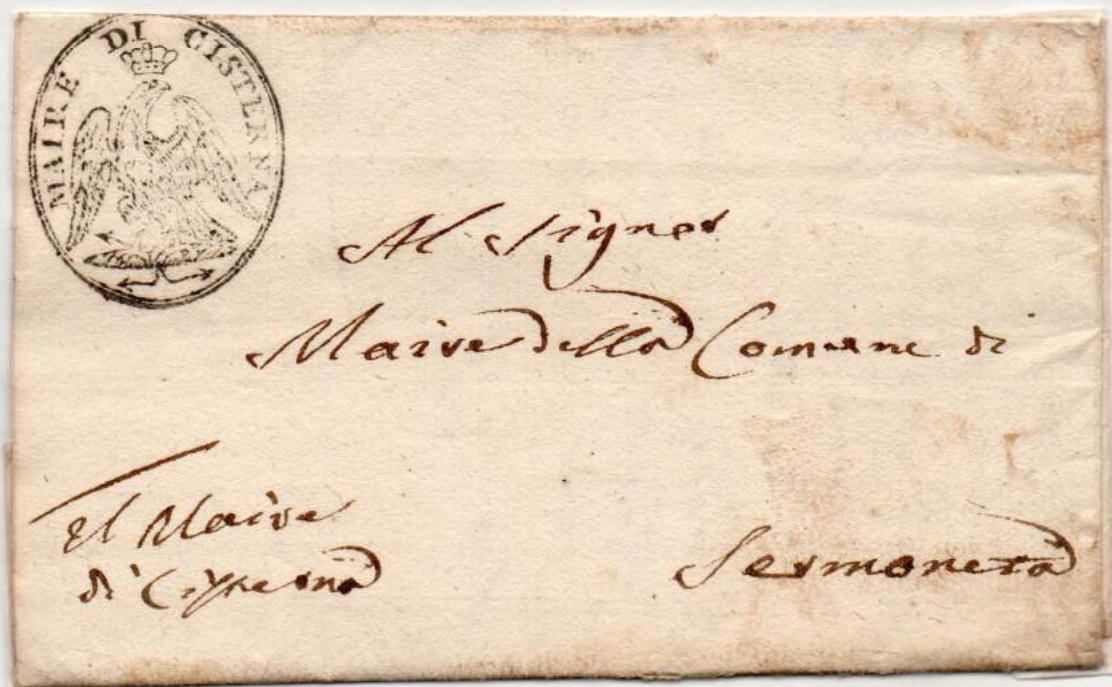 MAIRE DI CISTERNA
Al Signor
Maire della Comune di
Il Maire
di Cisterna
Sermoneta